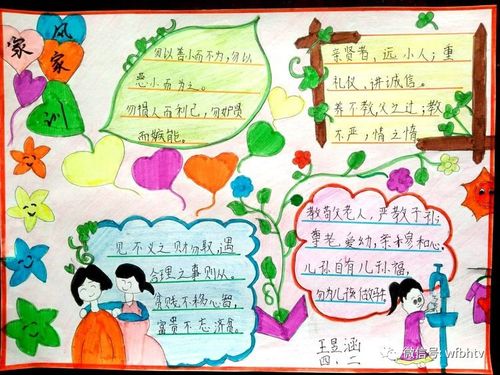 家风家训
勿以善小而不为,勿以
恶小而为之。
勿损人而利己,勿妒贤
而嫉能。
亲贤者,远小人;重
礼仪,讲诚信。
养不教,父之过;教
不严,情之惰
见不义之财勿取,遇
合理之事则从。
贫贱不移心智,
富贵不忘济贫。
敬老人,严教子孙;
尊老,爱幼,亲和心。
儿孙自有儿孙福,
勿为儿孩做
王昱涵
四、二
微信号: wfbhtv